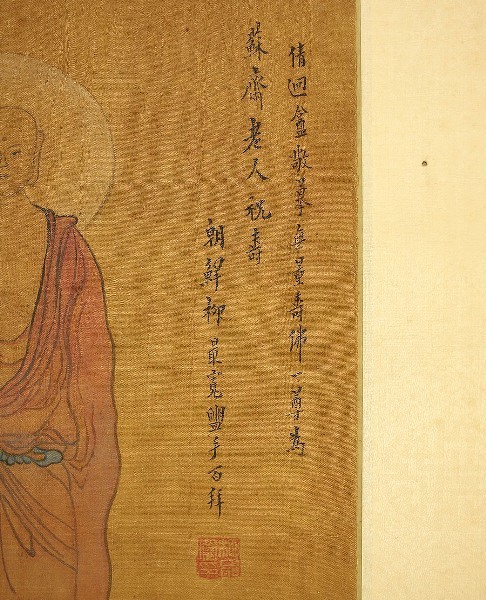 倩迴盦敬摹無量壽佛一尊爲
蘇齋老人祝壽
朝鮮柳最寬盥手百拜